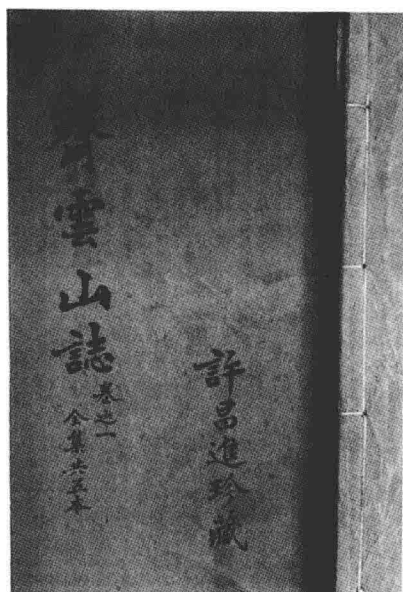 許昌進珍藏
齊雲山誌
卷之一
全集共五本